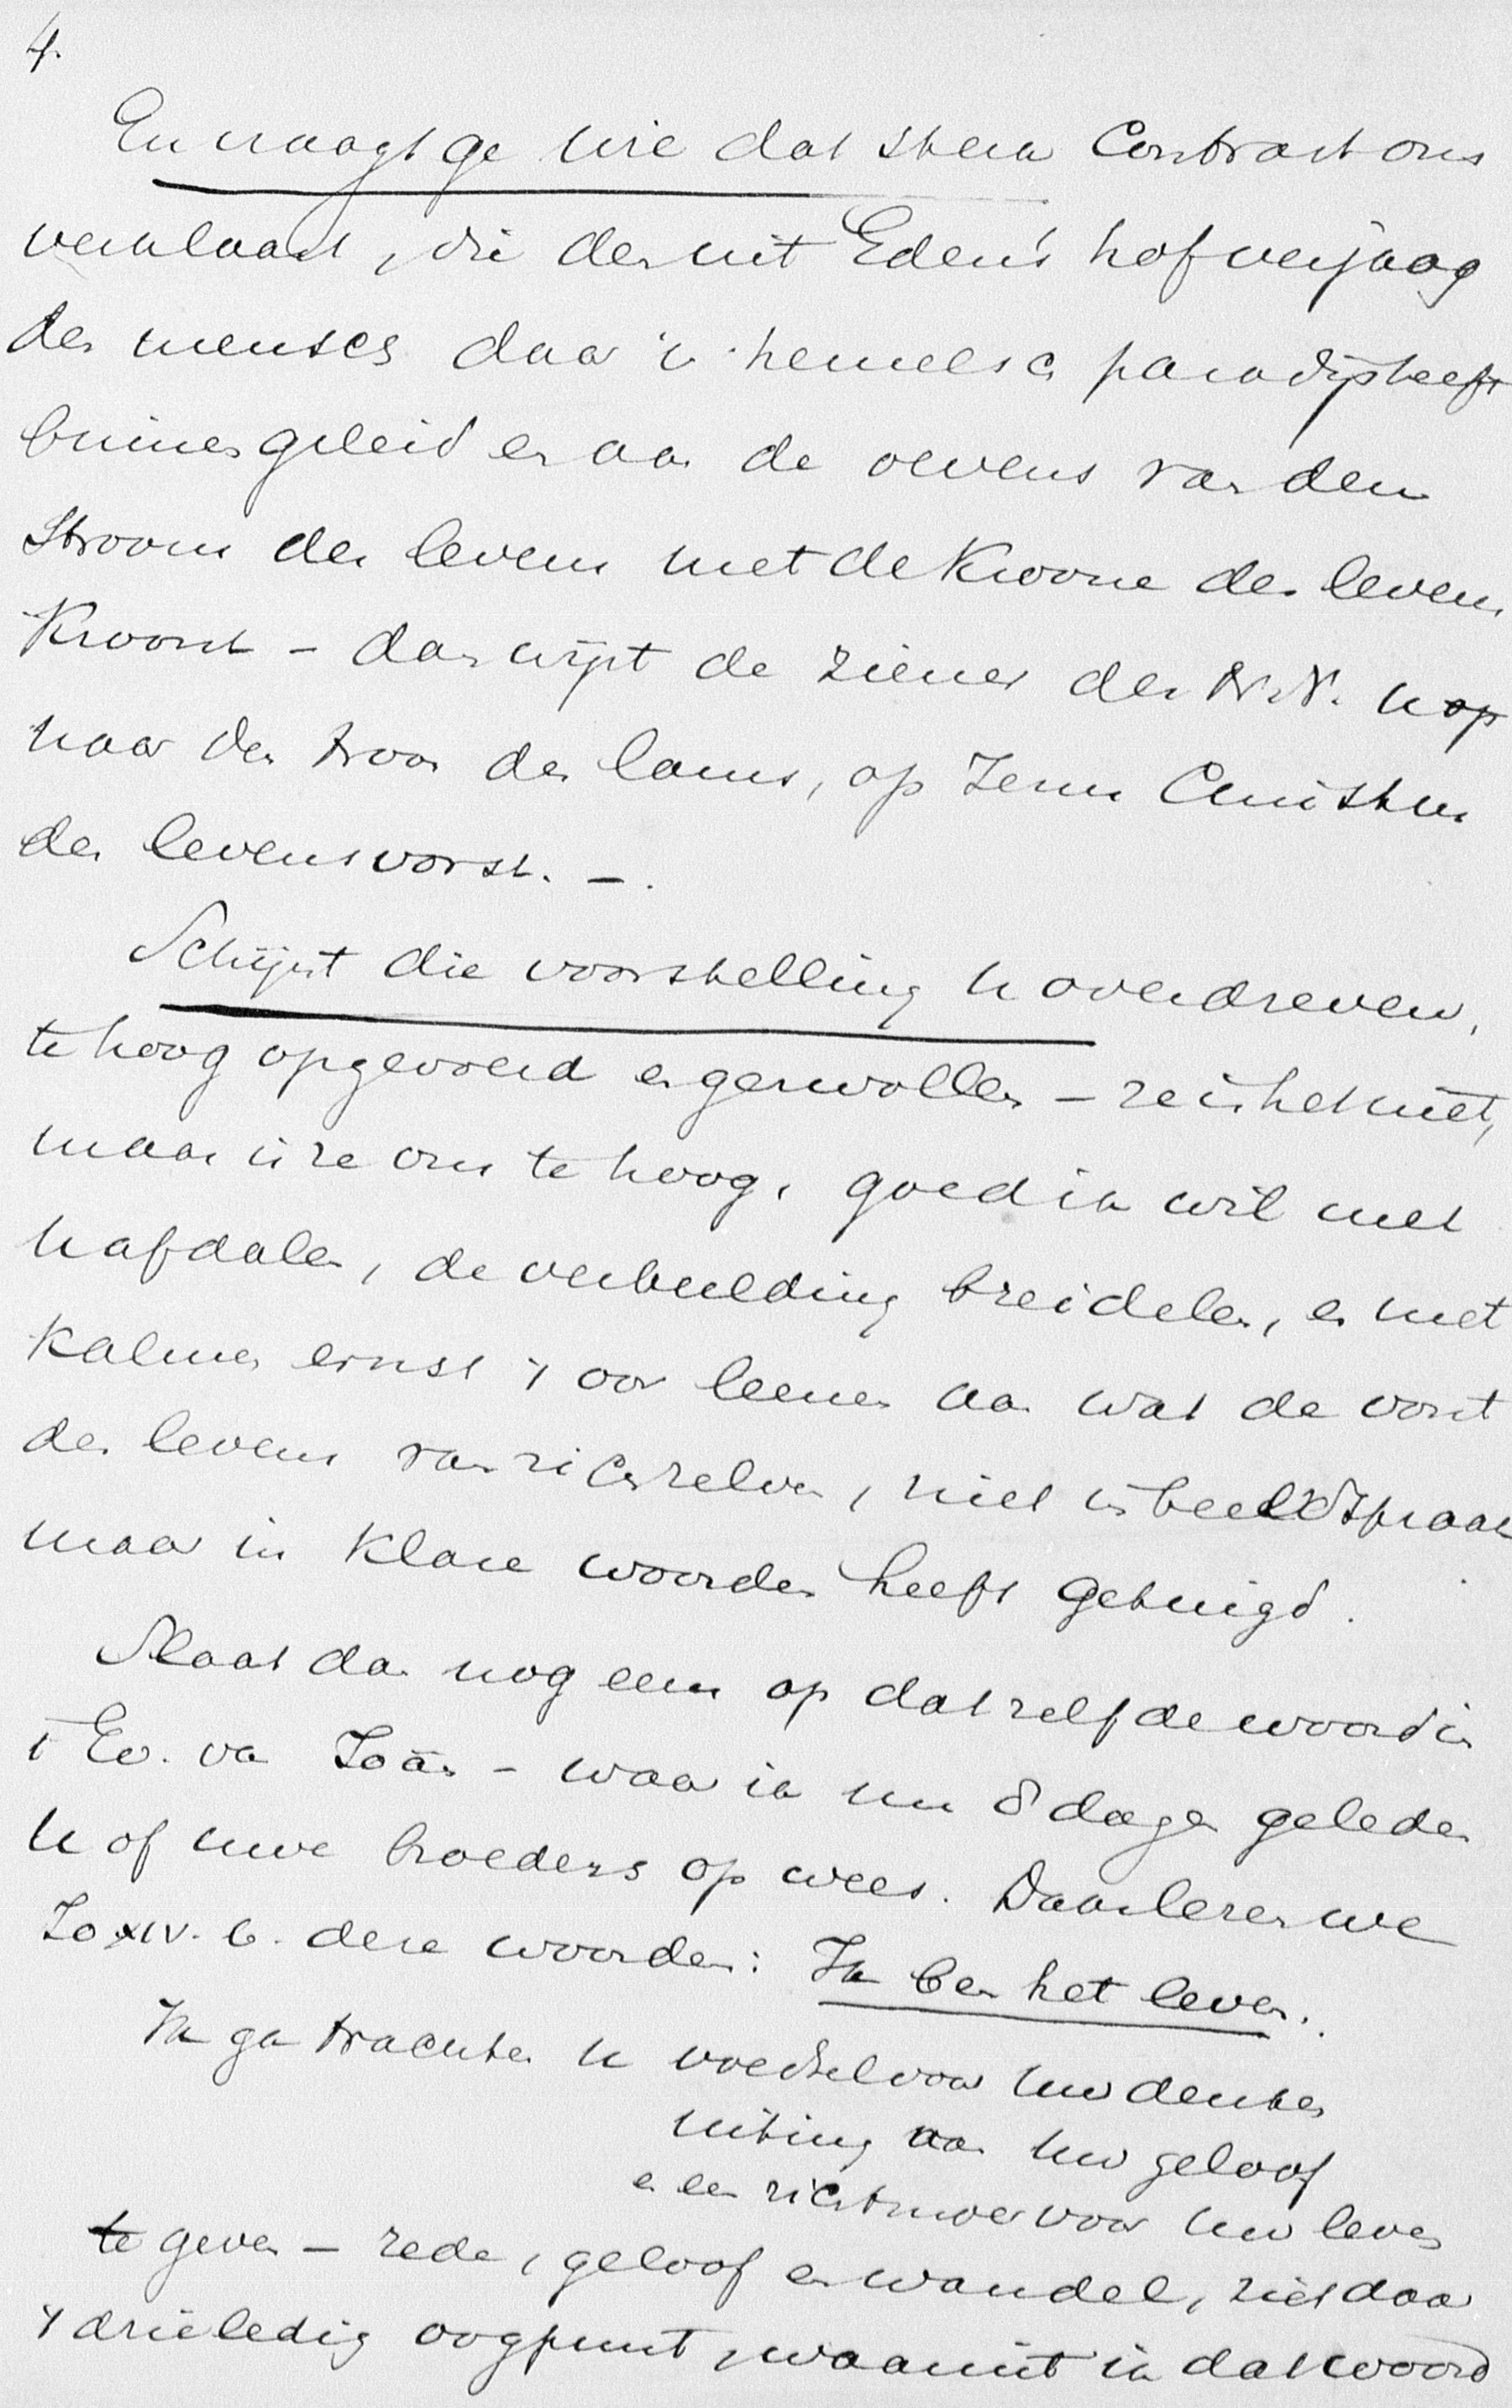 4.
En vraagt ge wie dat sterk Contrast ons
verklaart, wie den uit Eden's hof verjaag
den mensch daar in 't hemelsch paradijs heeft
binnengeleid en aan de oevers van den
Stroom des levens met de Kroone des levens
Kroont – dan wijst de ziener des N.V. u op
naar den troon des lams, op Jezus Christus
den levensvorst. –.
Schijnt die voorstelling u overdreven,
te hoog opgevoerd en gezwollen – zei het niet,
maar is ze ons te hoog, goed ik wil met
u afdalen, de verbeelding breidelen, en met
Kalmen ernst 't oor leenen aan wat de vorst
des levens van zich zelven, niet in beeldspraak
maar in klare woorden heeft getuigd.
Slaat dan nog eens op datzelfde woord in
't Ev. van Joan – waar ik nu 8 dagen geleden
u of uwe broeders op wees. Daar lezen we
Jo XIV. 6. deze woorden: Ik ben het leven.
Ik ga trachten u voedsel voor uw denken
uiting aan uw geloof
en een richtsnoer voor uw leven
te geven – rede, geloof en wandel, ziet daar
't drieledig oogpunt, waaruit ik dat woord